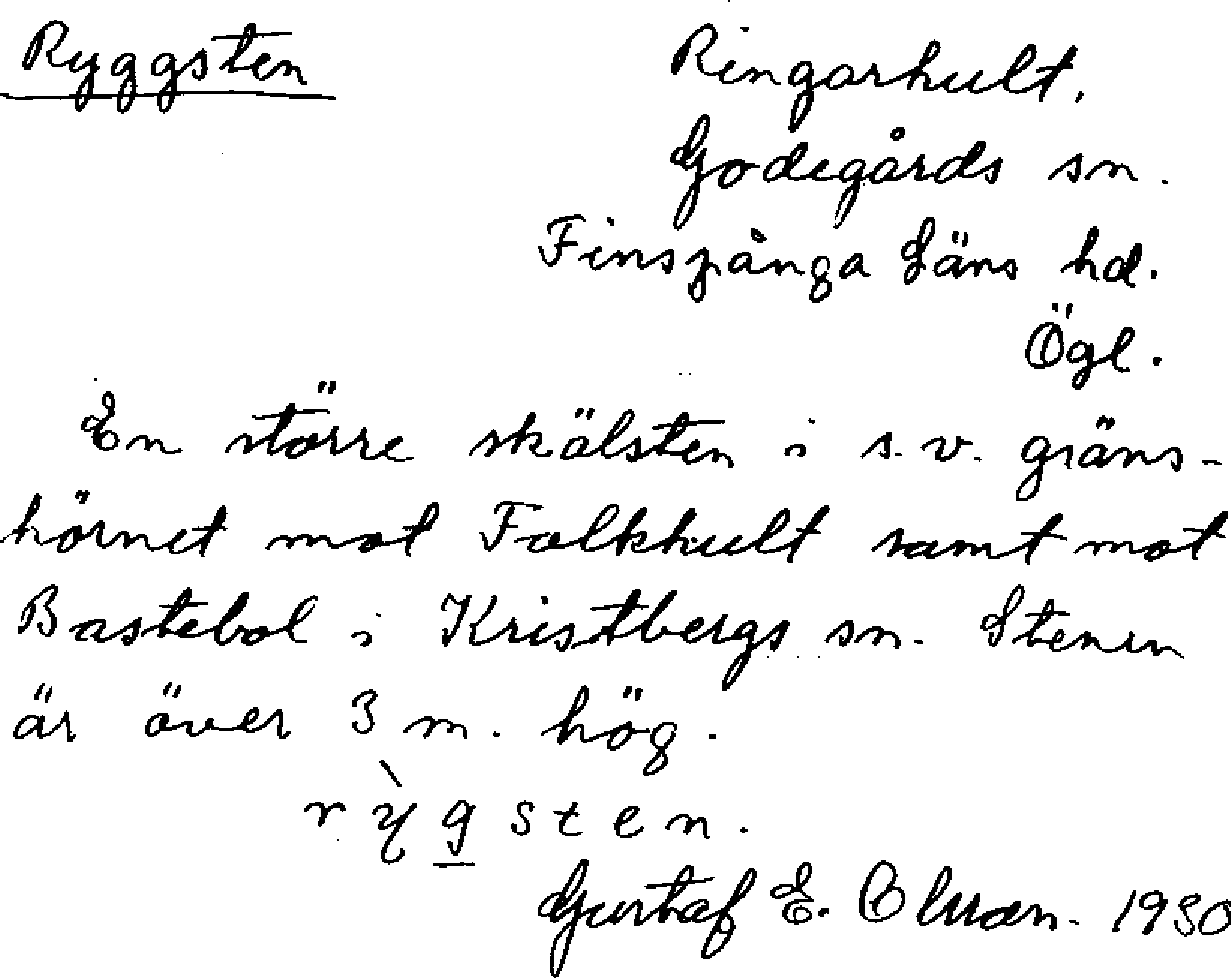 Ryggsten
Ringarhult.
Godegårds sn.
Finspånga Läns hd.
Ögl.
En större skälsten i s.v. gräns-
hörnet mot Folkhult samt mot
Bastebol i Kristbergs sn. Stenen
är över 3 m. hög.
rỳgsten.
Gustaf E. 1930